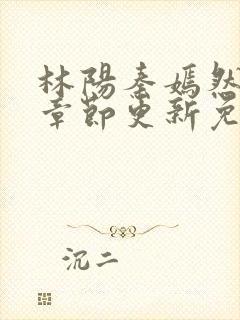 林陽秦嫣然
章節更新免
沉二